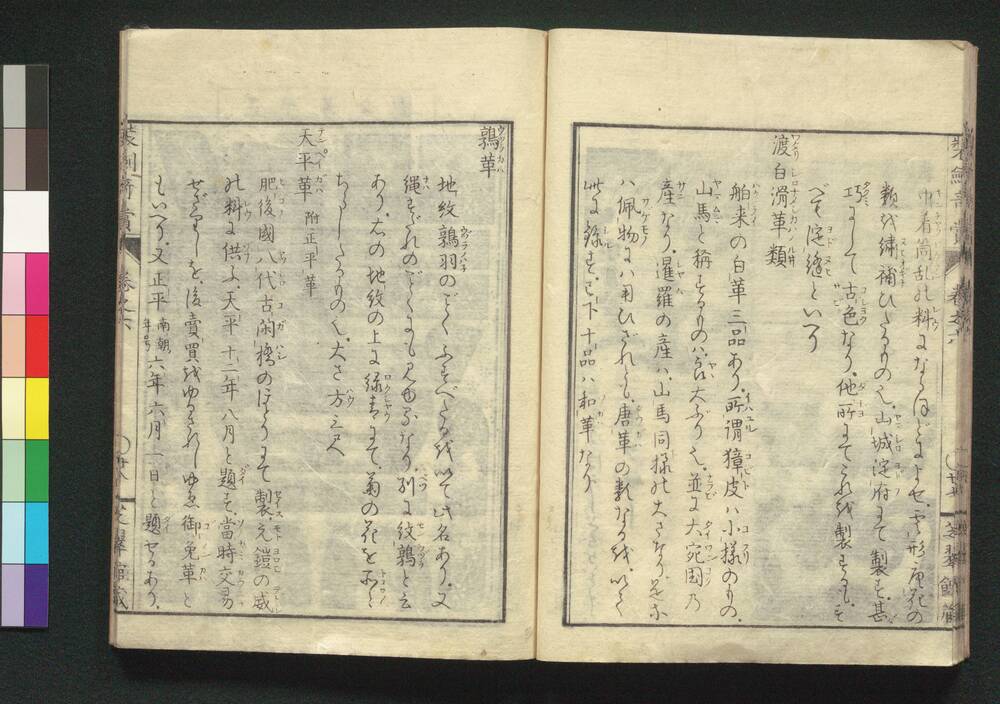 巾着筒乱の料になるほどによせ、雲形唐花の
類を繍補ひたるもの也、山城淀府にて製す、甚
巧にして古色なり、他所にてこれを製するも、す
べて淀縫といへり
渡白滑革類
舶来の白革三品あり、所謂獐皮ハ小様のもの、
山馬と称するものハ、最大ぶり也、並に大宛国乃
産なり、暹羅の産ハ、山馬同様の大さなり、是亦
ハ佩物にハ用ひざれども、唐革の数なるを、以て
此に録す、已下十品ハ和革なり
鶉革
地紋鶉羽のごとくふすべたるを以て此名あり、又
縄すだれのごとくにも見ゆるなり、別に紋鶉と云
あり、右の地紋の上に緑青にて、菊の花を所々
ちらしたるもの也、大さ方三尺
天平革 附正平革
肥後國八代古閑橋のほとりにて製、元鎧の威
の料に供ふ、天平十二年八月と題す、當時交易
せざりしを、後賣買をゆるされしゆゑ御免革と
もいへり、又正平南朝年号六年六月一日と題せるあり、
卷之六